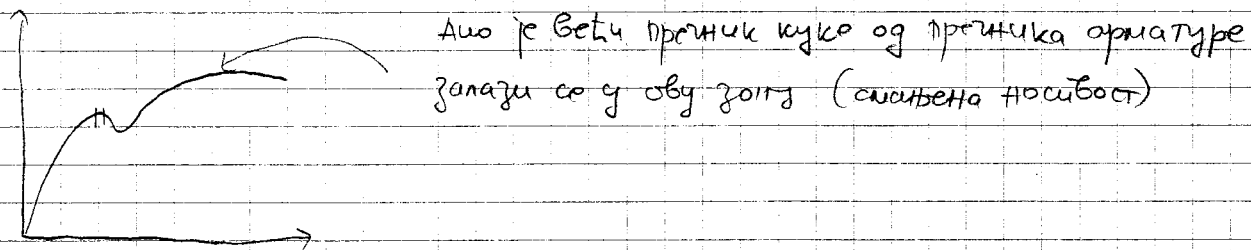 Ако је већи пречник куке од пречника арматуре
залази се у ову зону (смањена носивост)